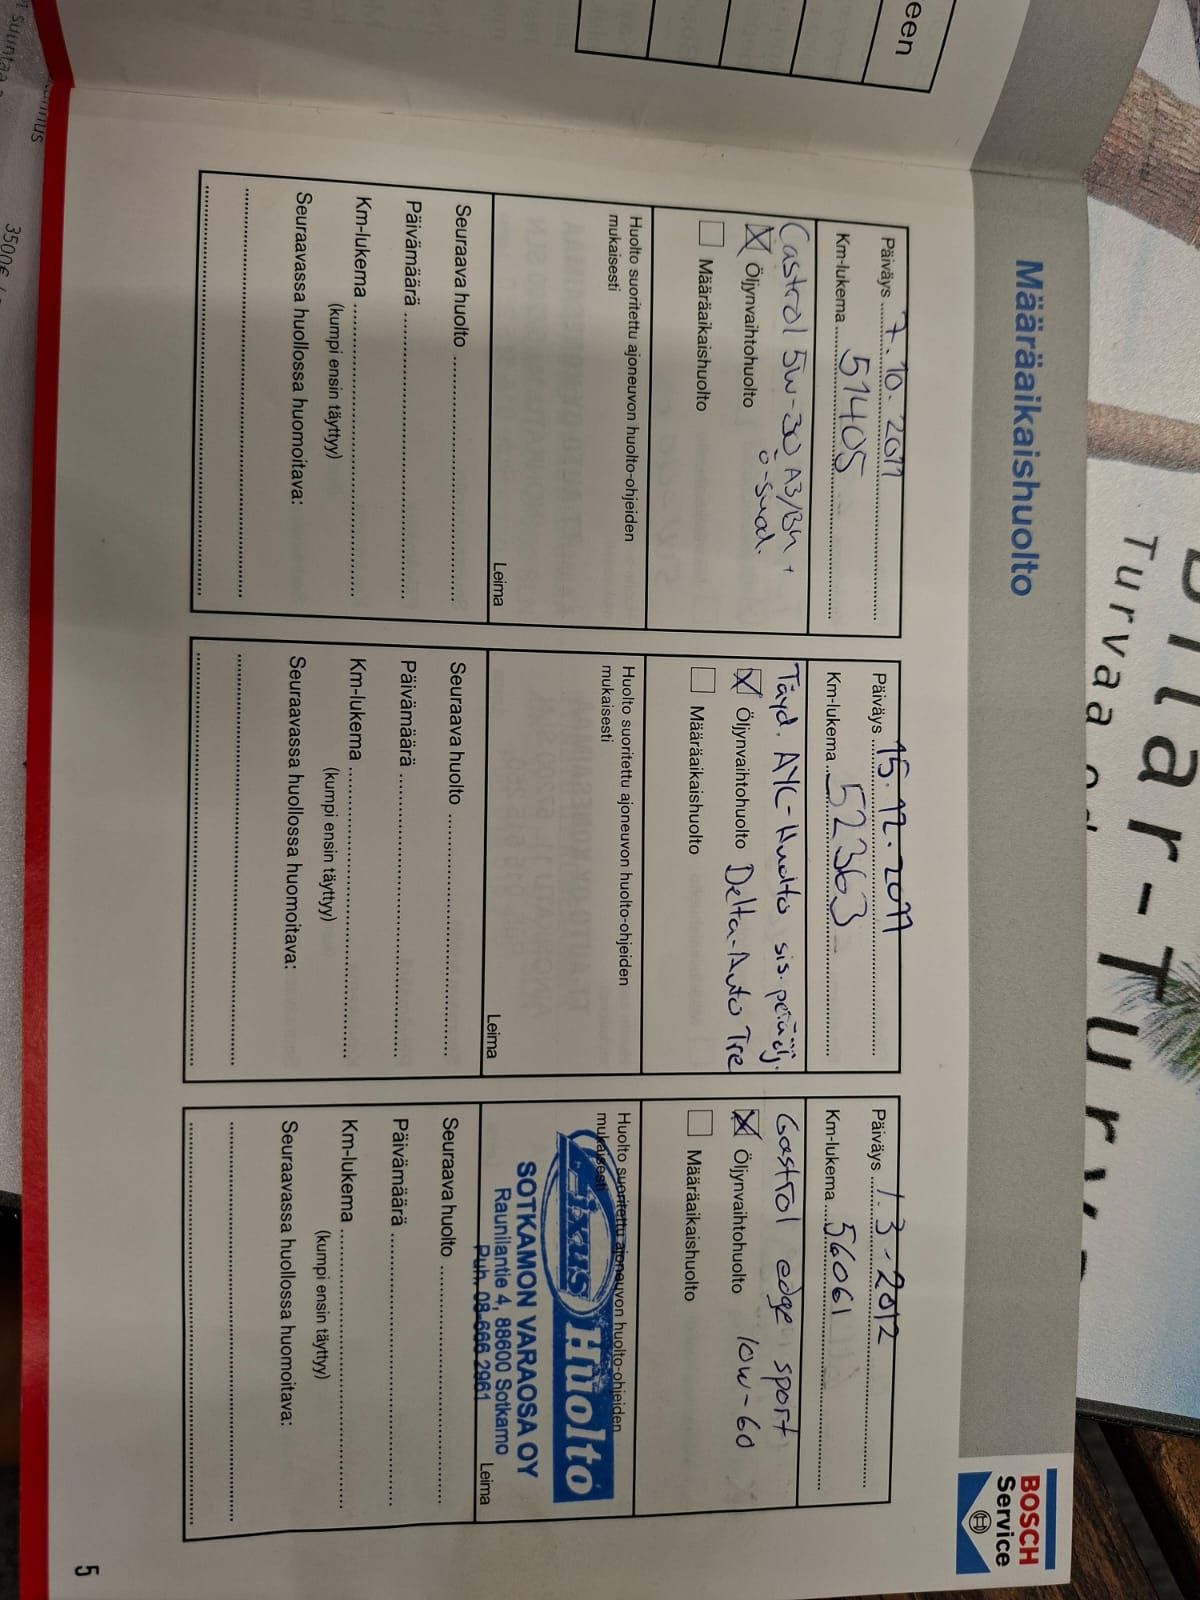 een
Määräaikaishuolto
BOSCH
Service
Päiväys 7.10.2011
Km-lukema 51405
Castrol 5w-30 A3/B4 +
ö-suod.
Öljynvaihtohuolto
Määräaikaishuolto
Huolto suoritettu ajoneuvon huolto-ohjeiden
mukaisesti
Leima
Seuraava huolto
Päivämäärä
Km-lukema
(kumpi ensin täyttyy)
Seuraavassa huollossa huomoitava:
Päiväys 15.12.2011
Km-lukema 52363
Täyd. AYC-Huolto sis. peräölj.
Öljynvaihtohuolto Delta-Auto Tre
Määräaikaishuolto
Huolto suoritettu ajoneuvon huolto-ohjeiden
mukaisesti
Leima
Seuraava huolto
Päivämäärä
Km-lukema
(kumpi ensin täyttyy)
Seuraavassa huollossa huomoitava:
Päiväys 1.3.2012
Km-lukema 56061
Castrol edge sport
Öljynvaihtohuolto 10w-60
Määräaikaishuolto
Huolto suoritettu ajoneuvon huolto-ohjeiden
mukaisesti
Fixus Huolto
SOTKAMON VARAOSA OY
Raunilantie 4, 88600 Sotkamo
Puh. 08-666 2961
Leima
Seuraava huolto
Päivämäärä
Km-lukema
(kumpi ensin täyttyy)
Seuraavassa huollossa huomoitava:
5
3500€